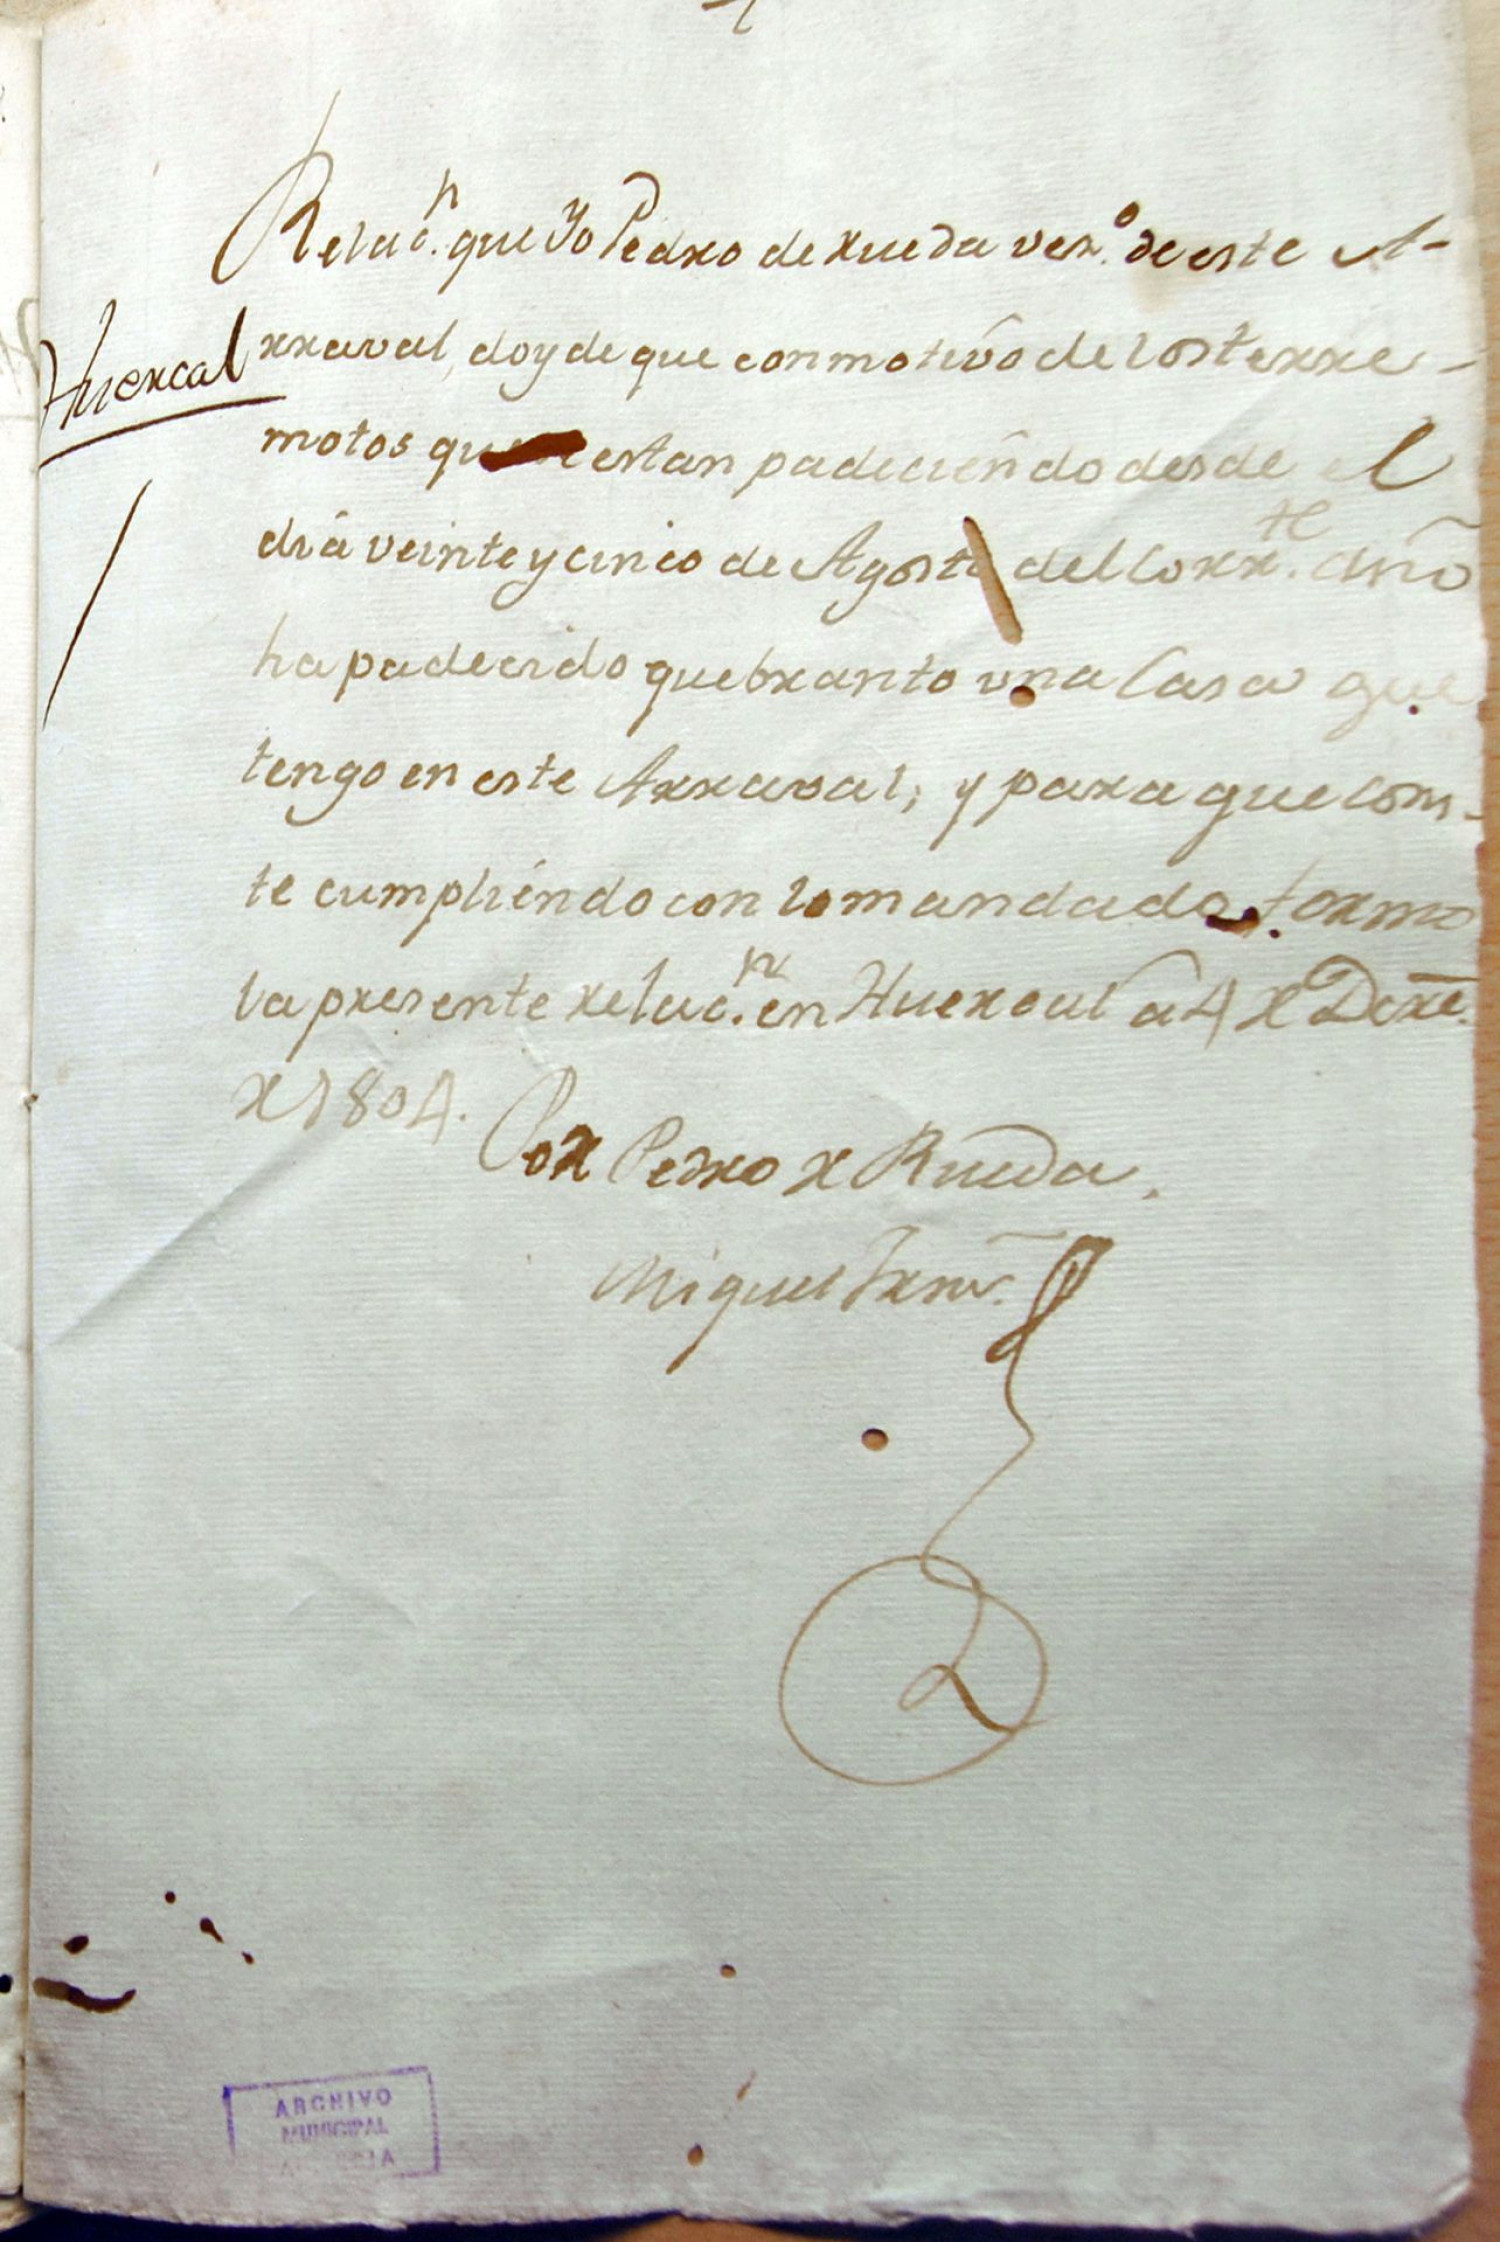 Huercal
Relac.n que Yo Pedro de rueda vez.o de este A-
rraval, doy de que con motivo de los terre-
motos que estan padeciendo desde el
dia veinte y cinco de Agosto del Corr.te año
ha padecido quebranto una Casa que
tengo en este Arraval; y para que cons-
te cumpliendo con lo mandado, formo
la presente relac.n en Huercal a 4 de Dcre.
de 1804.
Por Pedro de Rueda.
Miguel
ARCHIVO
MUNICIPAL